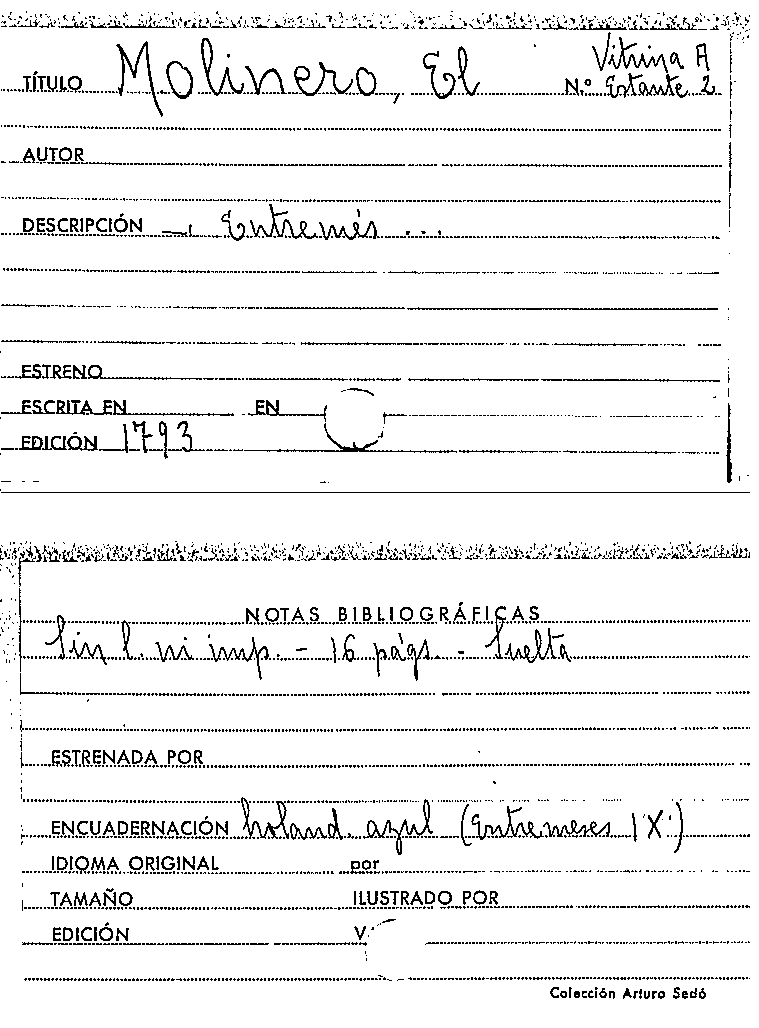 Vitrina A
TÍTULO Molinero, El N.º Estante 2
AUTOR
DESCRIPCIÓN —, Entremés ...
ESTRENO
ESCRITA EN EN
EDICIÓN 1793
NOTAS BIBLIOGRÁFICAS
Sin l. ni imp. - 16 págs. - Suelta
ESTRENADA POR
ENCUADERNACIÓN holand. azul (Entremeses IX)
IDIOMA ORIGINAL por
TAMAÑO ILUSTRADO POR
EDICIÓN V.
Colección Arturo Sedó